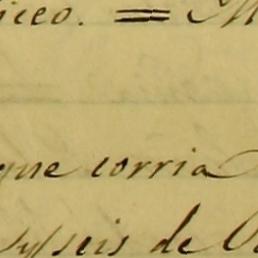 iceo. = M
que corria
sysseis de O